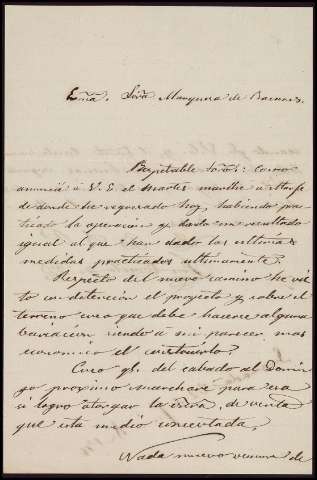 Exma. Sra. Marquesa de
Respetable Señora: Como
anuncié á V. E. el martes marché á
de donde he regresado hoy, habiendo prac-
ticado la operacion qe. dado un resultado
igual al que han dado las ultimas
medidas practicadas ultimamente.
Respecto del nuevo camino he vis-
to con detencion el proyecto y sobre el
terreno creo que debe hacerse alguna
bariacion siendo á mi parecer mas
economico el construirlo.
Creo qe. del sabado al Domin-
go proximo marchare para esa
si logro otorgar la escra. de venta
que está medio concertada.
Nada nuevo ocurre de